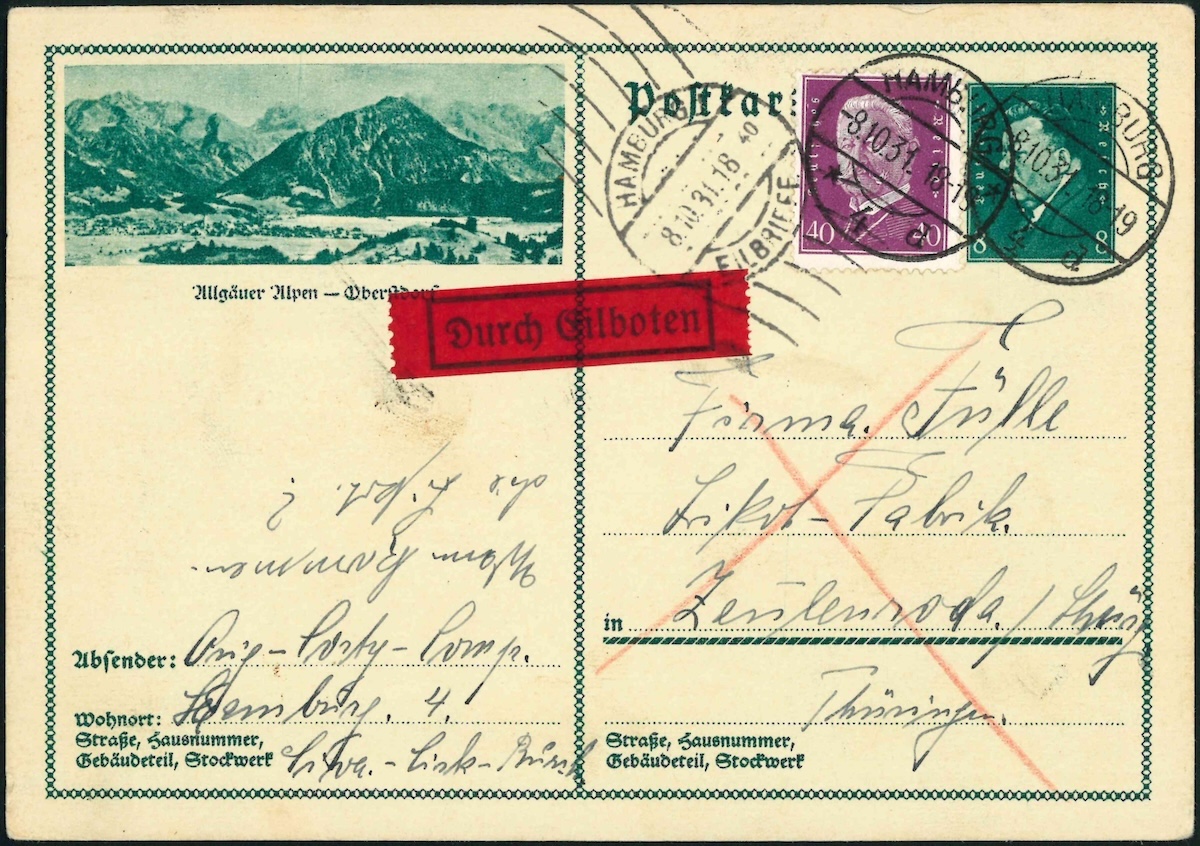 Postkar
Allgäuer Alpen — Oberstdorf
HAMBURG
8.10.31.18 40
EILBRIEFE
Deutsches Reich
40 40
HAMBURG
-8.10.31. 18-19
* 4 d *
Deutsches Reich
8 8
HAMBURG
8.10.31 18-19
4 d
Durch Eilboten
Firma. Fülle
Trikot-Fabrik.
in Zeulenroda. / Thüring
Thüringen.
Straße, Hausnummer,
Gebäudeteil, Stockwerk
Absender: Orig-Comp.
Wohnort: Hamburg. 4.
Straße, Hausnummer,
Gebäudeteil, Stockwerk